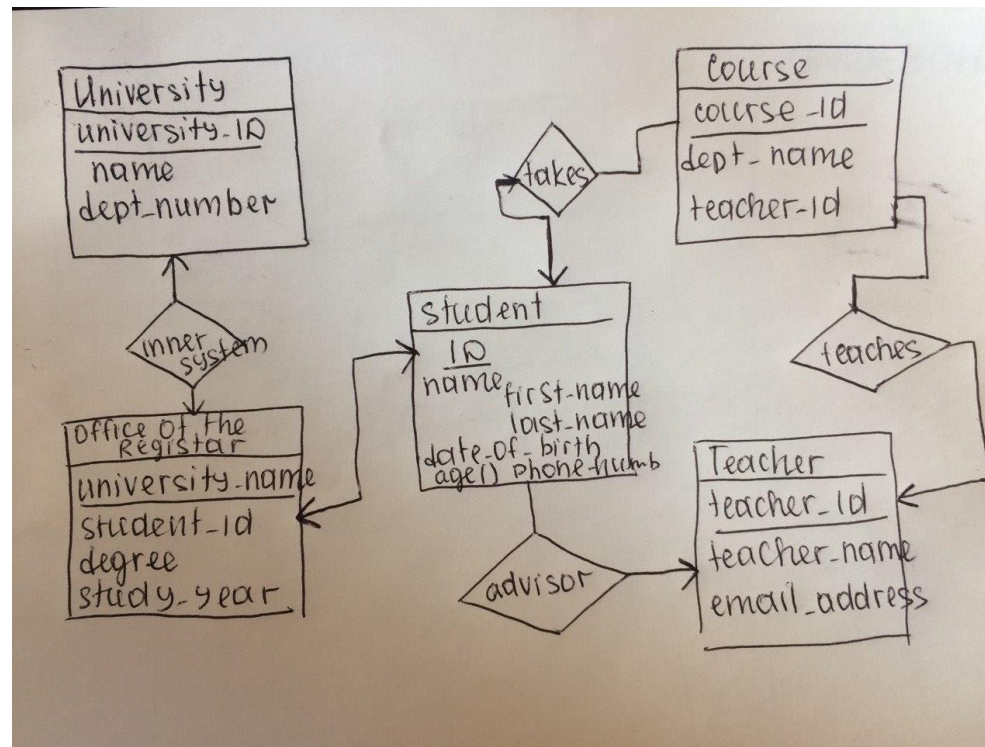 University
university_ID
name
dept_number
inner
system
Office Of the
Registar
university_name
student_id
degree
study_year
takes
Student
ID
name
first_name
last_name
date_of_birth
age() phone_numb
advisor
Course
course_id
dept_name
teacher_id
teaches
Teacher
teacher_id
teacher_name
email_address